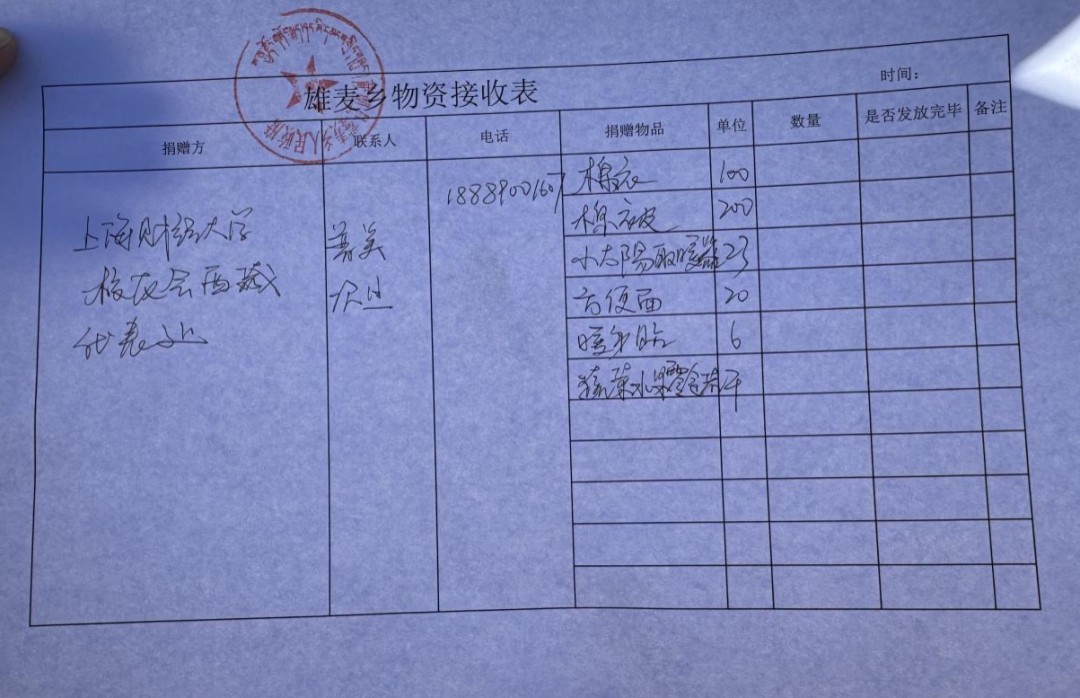 雄麦乡物资接收表
时间：
捐赠方 联系人 电话 捐赠物品 单位 数量 是否发放完毕 备注
18889001607 棉衣 100
上海财经大学 棉被 200
小太阳取暖器 23
校友会西藏 方便面 20
代表处 暖身贴 6
蔬菜水果零食若干